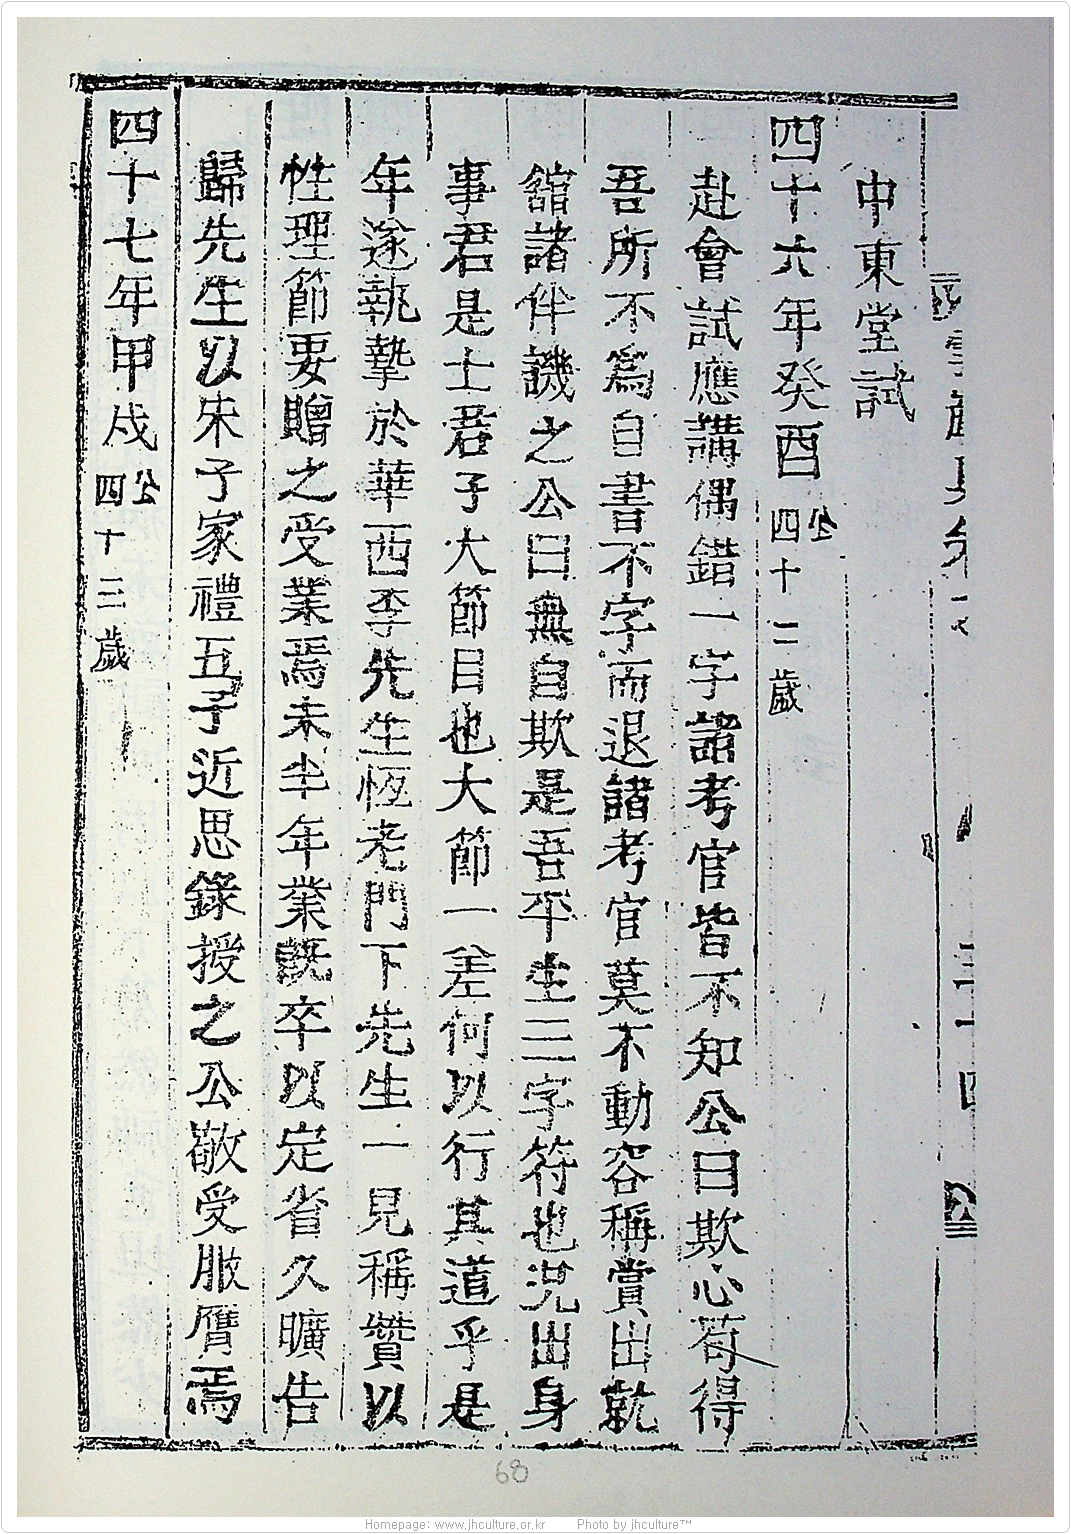 中東堂試
四十六年癸酉 公四十二歲
赴會試應講偶錯一字諸考官皆不知公曰欺心苟得
吾所不爲自書不字而退諸考官莫不動容稱賞出就
舘諸伴譏之公曰無自欺是吾平生三字符也况出身
事君是士君子大節目也大節一差何以行其道乎是
年遂執摯於華西李先生恆老門下先生一見稱贊以
性理節要贈之受業焉未半年業旣卒以定省久曠告
歸先生以朱子家禮五子近思錄授之公敬受服膺焉
四十七年甲戌 公四十三歲
三十四
68
Homepage: www.jhculture.or.kr Photo by jhculture™